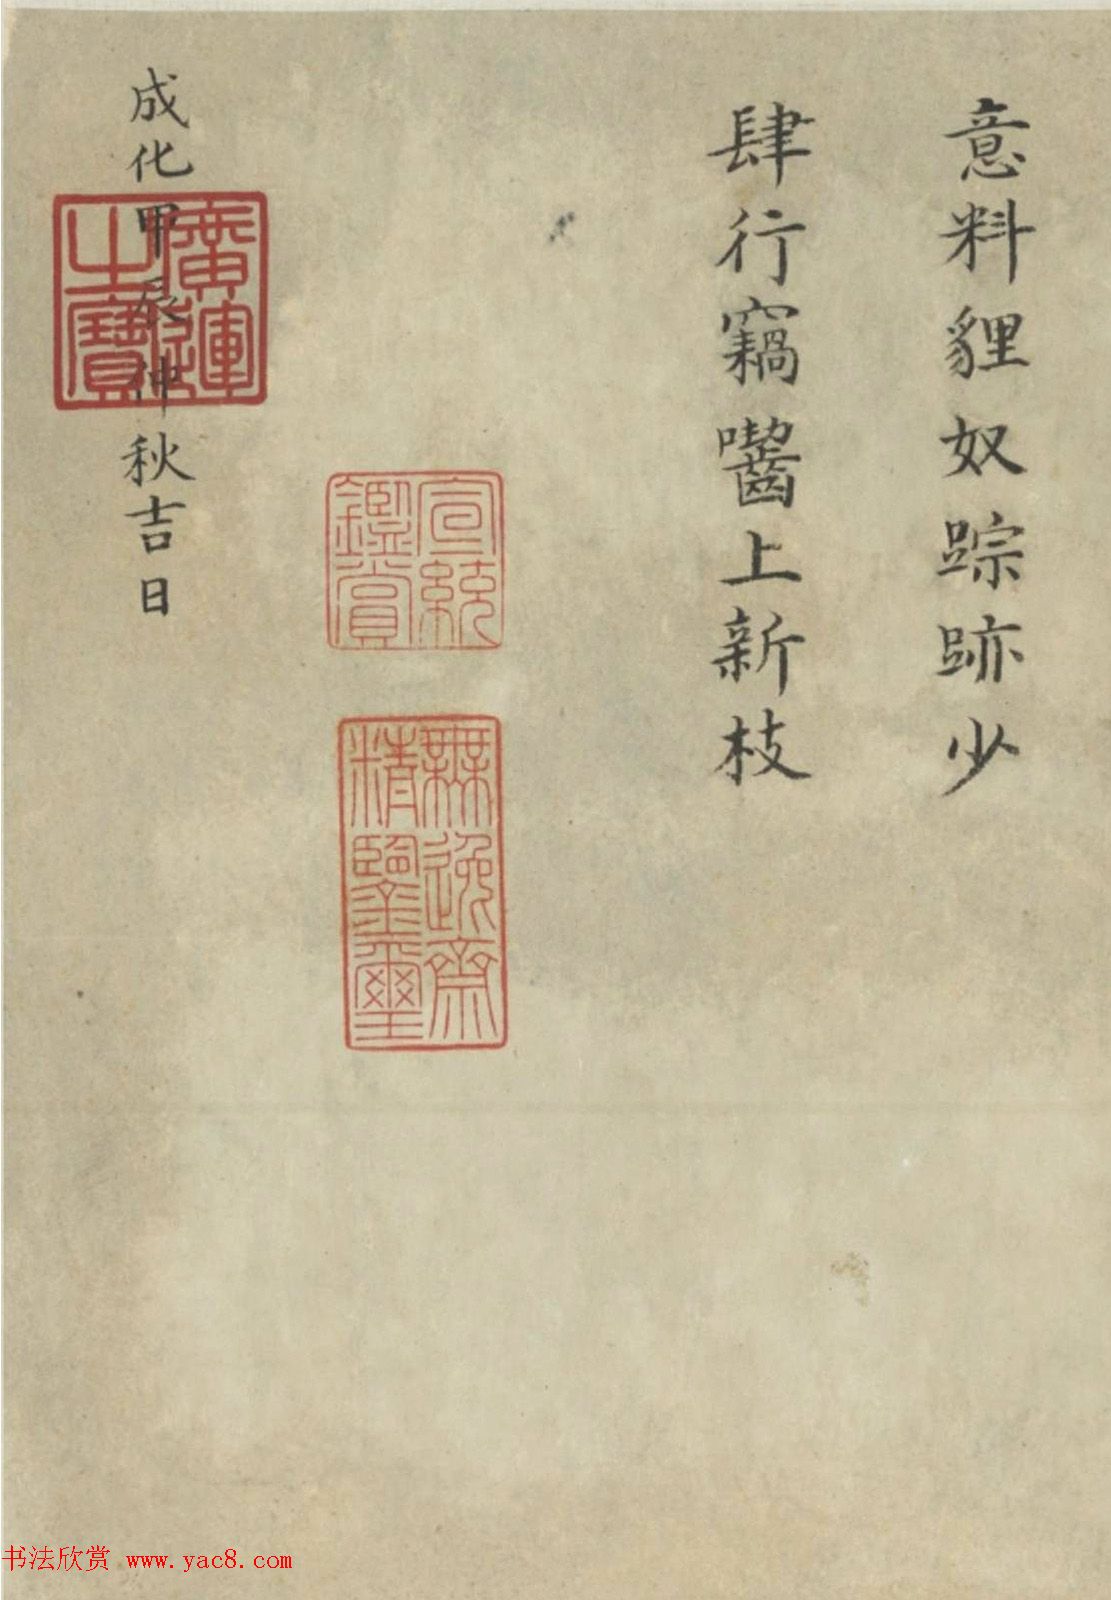 意料貍奴踪跡少
肆行竊嚙上新枝
宣統鑑賞
無逸齋精鑒璽
成化甲辰仲秋吉日
廣運之寶
书法欣赏 www.yac8.com